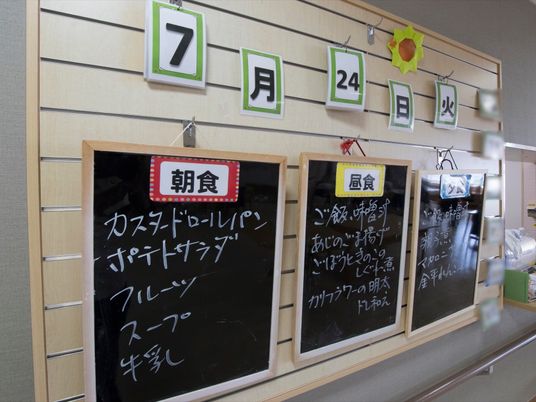 7月24日火
朝食
カスタードロールパン
ポテトサラダ
フルーツ
スープ
牛乳
昼食
ご飯、味噌汁
あじのごま揚げ
ごぼうときのこの
カリフラワーの明太
ドレ和え
夕食
ご飯、味噌汁
マカロニ